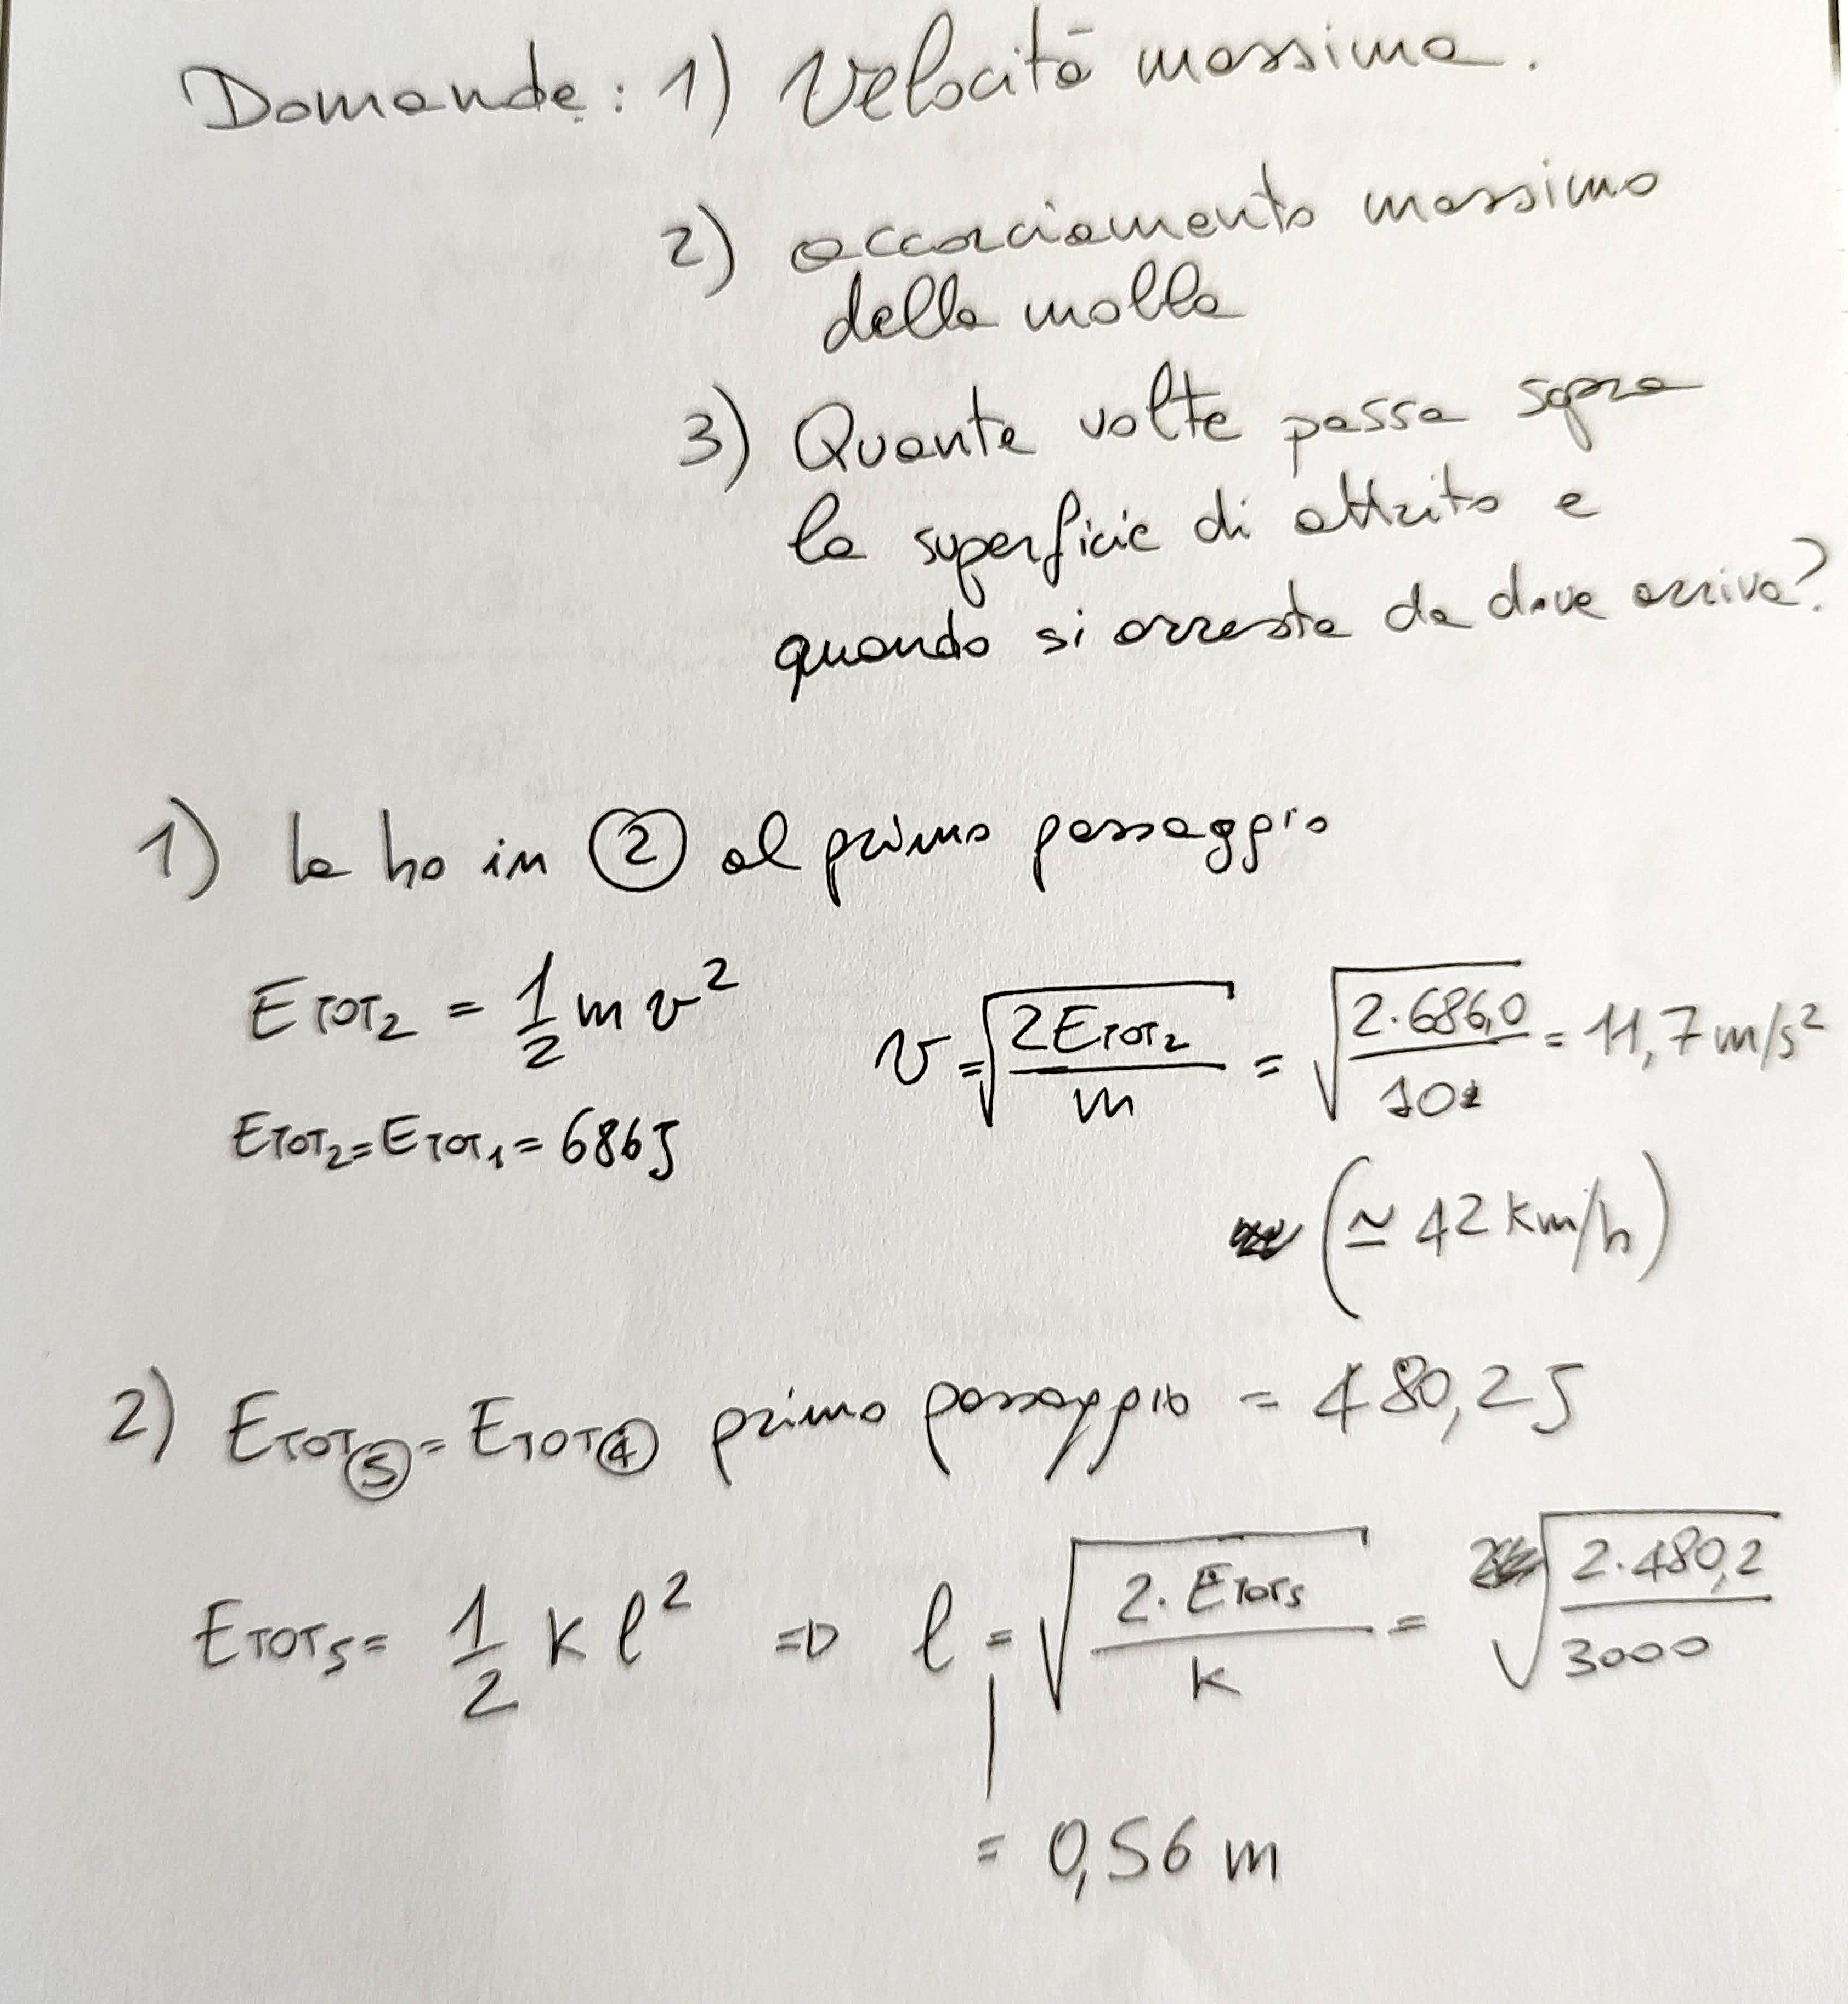 Domande: 1) Velocità massima.
2) accorciamento massimo
della molla
3) Quante volte passa sopra
la superficie di attrito e
quando si arresta da dove arriva?
1) la ho in ② al primo passaggio
ETOT₂ = 1/2 m v²
v = √(2ETOT₂/m) = √(2·686,0/10) = 11,7 m/s²
ETOT₂ = ETOT₁ = 686J
(≃ 42 km/h)
2) ETOT⑤ = ETOT④ primo passaggio = 480,2J
ETOT₅ = 1/2 k l² => l = √(2·ETOT₅/k) = √(2·480,2/3000)
= 0,56 m